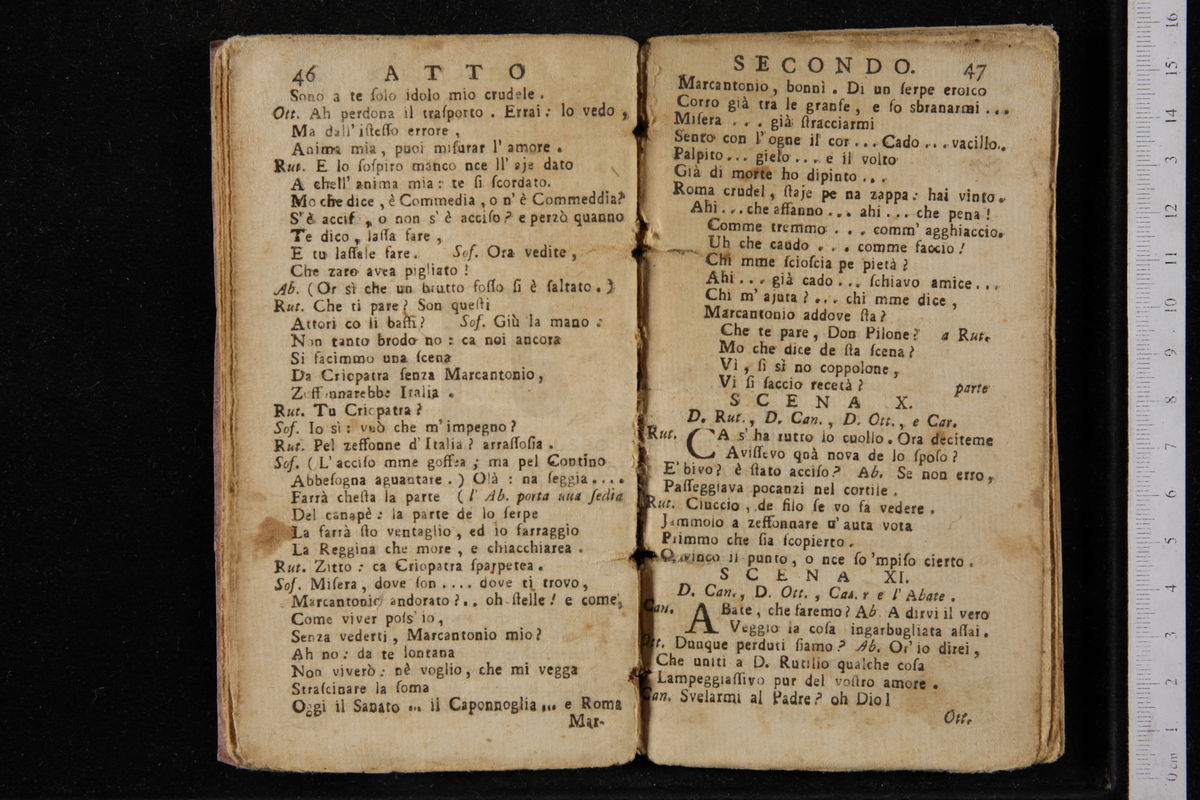 46 ATTO
Sono a te ſolo idolo mio crudele .
Ott. Ah perdona il traſporto . Errai : lo vedo ,
Ma dall' iſteſſo errore ,
Anima mia , puoi miſurar l' amore .
Rut. E lo ſoſpiro manco nce ll' aje dato
A chell' anima mia : te ſi ſcordato.
Mo che dice , è Commedia , o n' è Commeddia?
S' è acciſ , o non s' è acciſo ? e perzò quanno
Te dico , laſſa fare ,
E tu laſſale fare . Sof. Ora vedite ,
Che zaro avea pigliato !
Ab. (Or sì che un brutto foſſo ſi è ſaltato . )
Rut. Che ti pare ? Son queſti
Attori co li baffi ? Sof. Giù la mano :
Non tanto brodo no : ca noi ancora
Si facimmo una ſcena
Da Criopatra ſenza Marcantonio ,
Zeffonnarebbe Italia .
Rut. Tu Criopatra ?
Sof. Io sì : vuò che m' impegno ?
Rut. Pel zeffonne d' Italia ? arraſſoſia .
Sof. ( L' acciſo mme goffea ; ma pel Contino
Abbeſogna aguantare . ) Olà : na ſeggia ....
Farrà cheſta la parte ( l' Ab. porta una ſedia
Del canapè : la parte de lo ſerpe
La farrà ſto ventaglio , ed io farraggio
La Reggina che more , e chiacchiarea .
Rut. Zitto : ca Criopatra ſparpetea .
Sof. Miſera , dove ſon .... dove ti trovo ,
Marcantonio andorato ? .. oh ſtelle ! e come,
Come viver poſs' io ,
Senza vederti , Marcantonio mio ?
Ah no : da te lontana
Non viverò : nè voglio , che mi vegga
Straſcinare la ſoma
Oggi il Sanato ... il Caponnoglia ... e Roma
Mar-
SECONDO. 47
Marcantonio , bonnì . Di un ſerpe eroico
Corro già tra le granfe , e fo sbranarmi ...
Miſera ... già ſtracciarmi
Sento con l' ogne il cor ... Cado ... vacillo..
Palpito ... gielo .... e il volto
Già di morte ho dipinto ...
Roma crudel , ſtaje pe na zappa : hai vinto.
Ahi ... che affanno ... ahi ... che pena !
Comme tremmo ... comm' agghiaccio.
Uh che caudo ... comme faccio !
Chi mme ſcioſcia pe pietà ?
Ahi ... già cado ... ſchiavo amice ...
Chi m' ajuta ? ... chi mme dice ,
Marcantonio addove ſta ?
Che te pare , Don Pilone ? a Rut.
Mo che dice de ſta ſcena ?
Vì , ſi sì no coppolone ,
Vi ſi ſaccio recetà ? parte
SCENA X.
D. Rut. , D. Can. , D. Ott. , e Car.
Rut. CA s' ha rutto lo cuollo . Ora deciteme
Aviſſevo quà nova de lo ſpoſo ?
E' bivo ? è ſtato acciſo ? Ab. Se non erro ,
Paſſeggiava pocanzi nel cortile .
Rut. Ciuccio , de filo ſe vo fa vedere .
Jammolo a zeffonnare n' auta vota
Primmo che ſia ſcopierto .
O vinco il punto , o nce ſo 'mpiſo cierto .
SCENA XI.
D. Can. , D. Ott. , Car. e l' Abate .
Can. ABate , che faremo ? Ab. A dirvi il vero
Veggio la coſa ingarbugliata aſſai .
Ott. Dunque perduti ſiamo ? Ab. Or' io direi ,
Che uniti a D. Rutilio qualche coſa
Lampeggiaſſivo pur del voſtro amore .
Can. Svelarmi al Padre ? oh Dio !
Ott.
0 cm 1 2 3 4 5 6 7 8 9 10 11 12 13 14 15 16